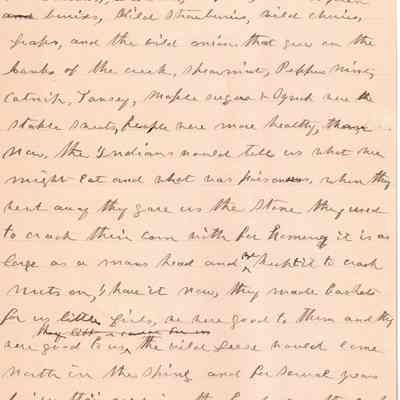 and buries, Wild Strawburies, wild cheries,
Graps, and the wild onion that grew on the
banks of the creek, Spearmint, Pepper Mint,
Catnip, Tansey, Maple sugar & Syrup were the
stable sweets, People were more healthy, than
Now, the Indians would tell us what we
might Eat and what was poisonous, when they
went away they gave us the Stone they used
to crack their corn with for homeny it is as
large as a mans head and we kept it to crack
nuts on, I have it now, they made baskets
for us little girls, we were good to them and they
they left
were good to us, the wild Geese would come
North in the Spring and for several years